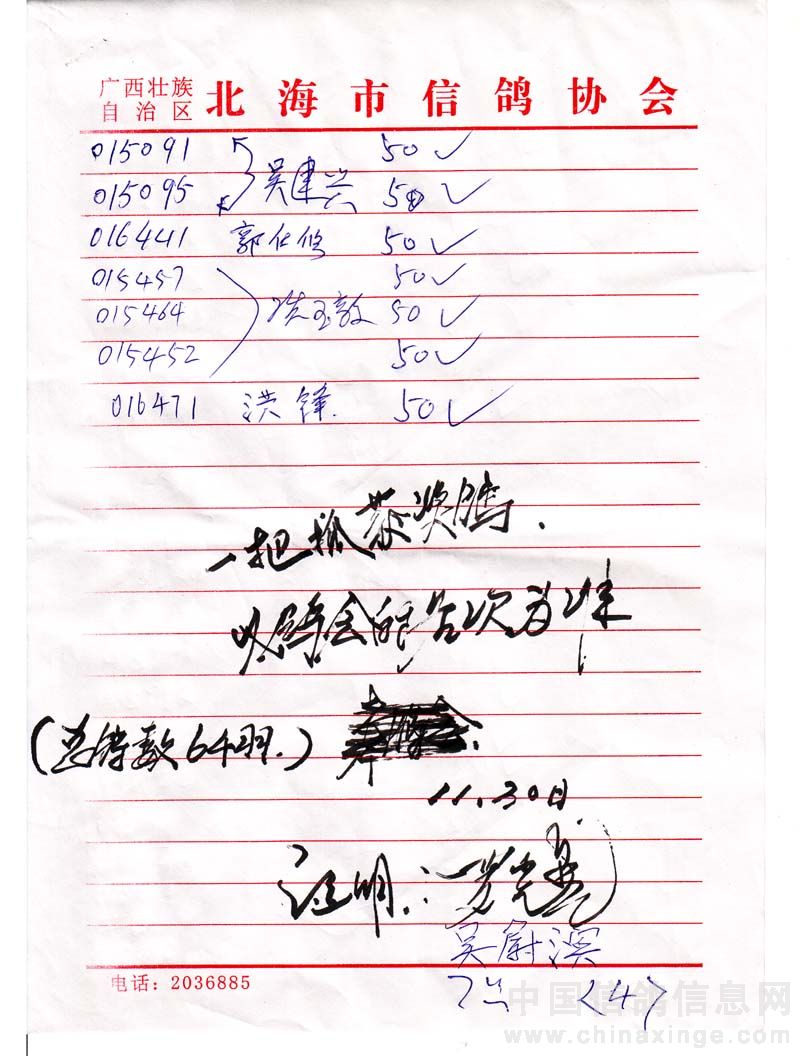 广西壮族
自治区 北海市信鸽协会
015091 50 ✓
015095 吴建兴 50 ✓
016441 郭仕修 50 ✓
015457 50 ✓
015464 洪玉敦 50 ✓
015452 50 ✓
016471 洪锋. 50 ✓
一把抓获奖鸽.
以鸽会的名次为准
(总鸽数64羽.)
11.30日
证明:
吴尉溟
<4>
电话:2036885
中国信鸽信息网
www.chinaxinge.com